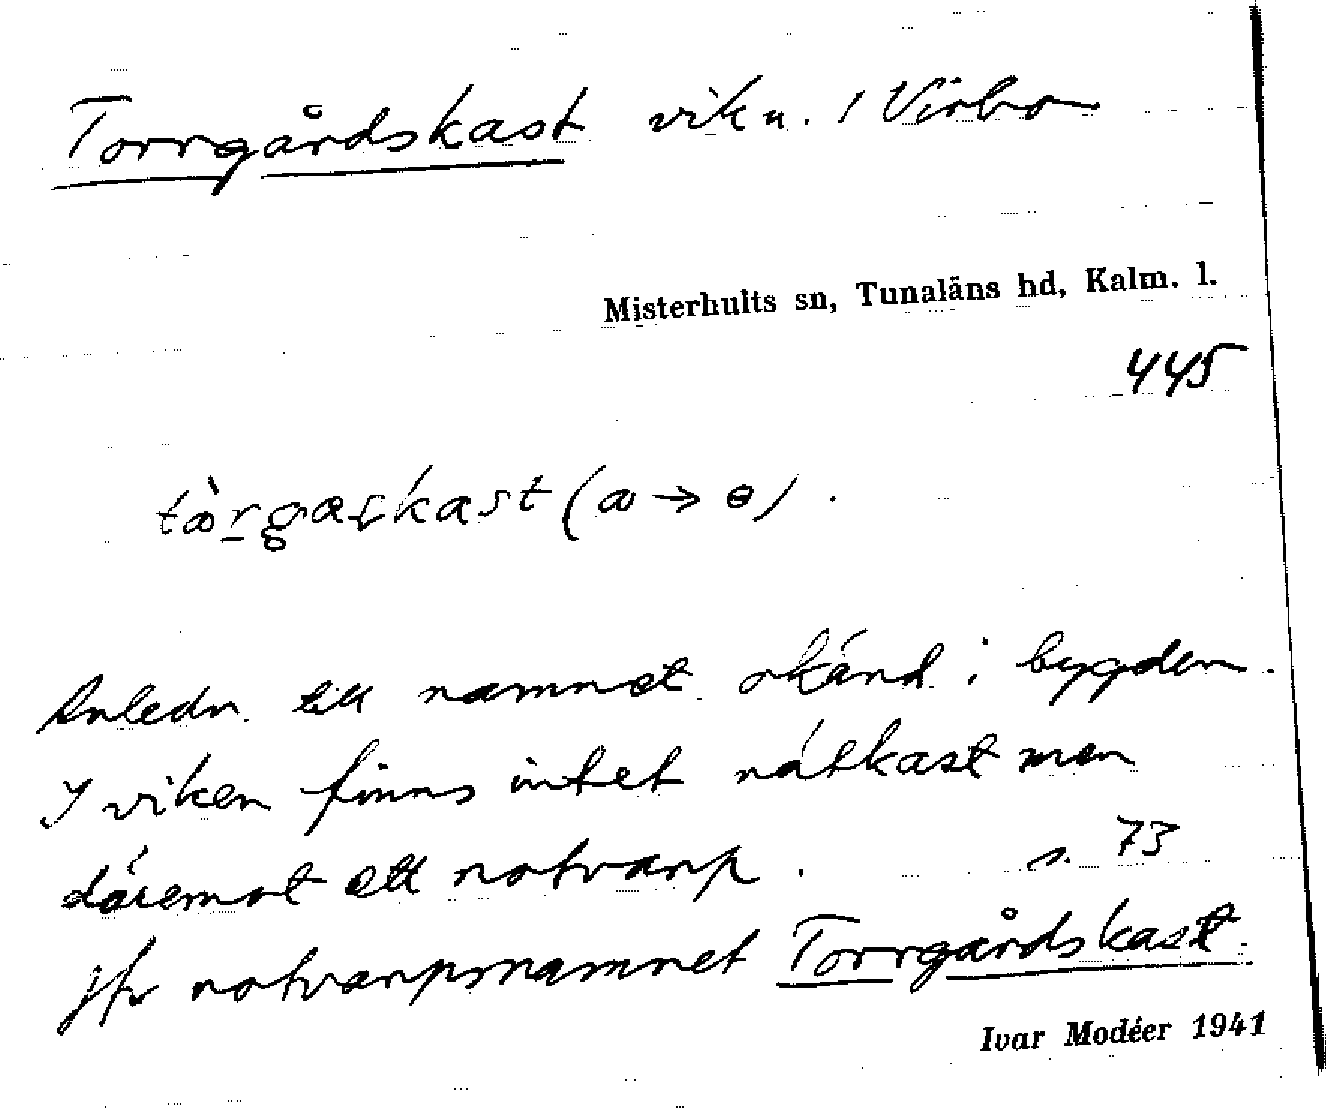 Torrgårdskast vik n. / Virbo
Misterhults sn, Tunaläns hd, Kalm. l.
445
tæ̀rgaskast (æ → ɵ) .
Anledn. till namnet okänd i bygden.
I viken finns intet nätkast men
däremot ett notvarp . s. 73
jfr notvarpsnamnet Torrgårdskast.
Ivar Modéer 1941